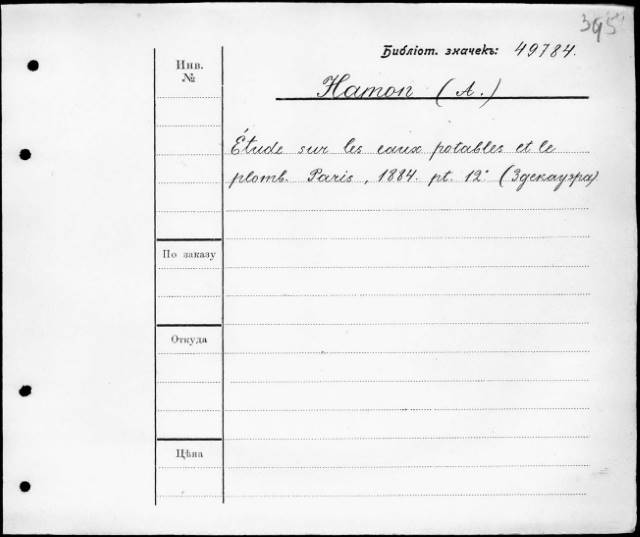 395
Библіот. значекъ: 49784.
Инв. №
Hamon (A.)
Étude sur les eaux potables et le
plomb. Paris, 1884. pt. 12° (Здекауэра)
По заказу
Откуда
Цѣна